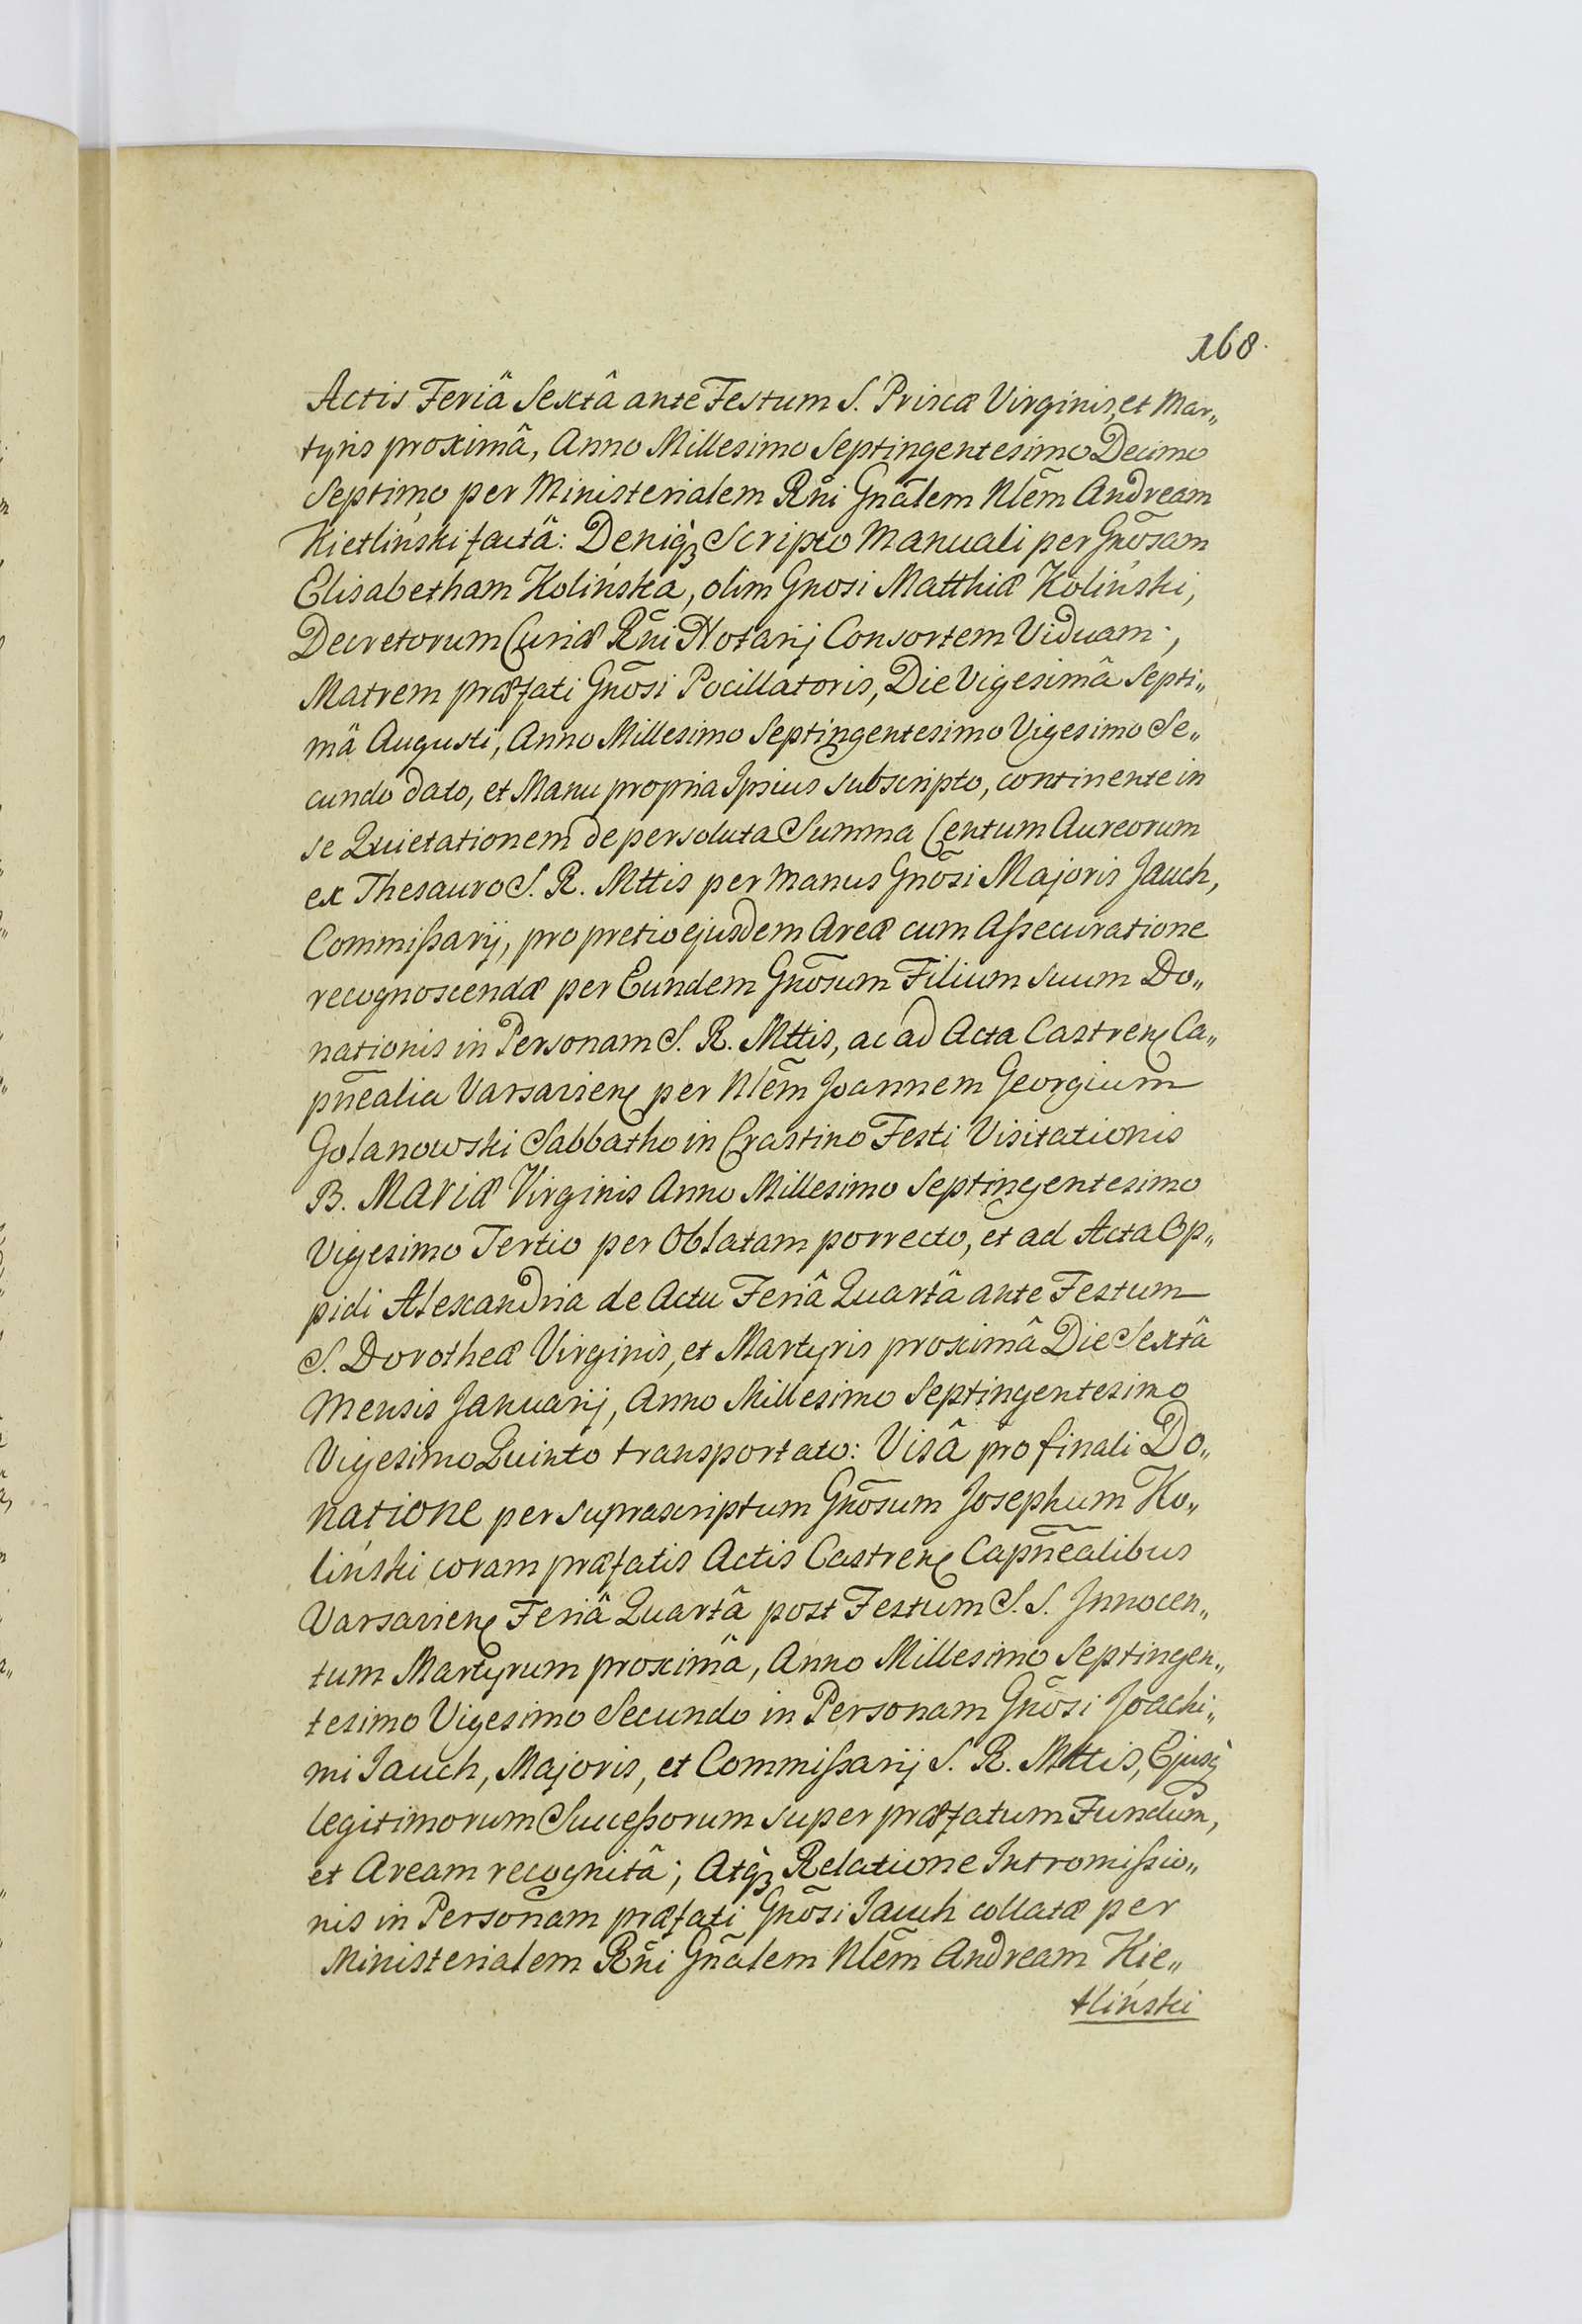 168.
Actis Feriâ Sextâ ante Festum S. Priscæ Virginis, et Mar„
tyris proximâ, Anno Millesimo Septingentesimo Decimo
Septimo per Ministerialem Rñi Gnãlem Nlẽm Andream
Kietliński factâ: Deniq̀ꝫ Scripto Manuali per Gnõsam
Elisabetham Kolińska, olim Gnosi Matthiæ Koliński,
Decretorum Curiæ Rñi Notarij Consortem Viduam;,
Matrem præfati Gnõsi Pocillatoris, Die Vigesimâ Septi„
mâ Augusti, Anno Millesimo Septingentesimo Vigesimo Se„
cundo dato, et Manu propria Ipsius subscripto, continente in
se Quietationem de persoluta Summa Centum Aureorum
ex Thesauro S. R. Mttis per manus Gnõsi Majoris Jauch,
Commißarij, pro pretio ejusdem Areæ cum Aßecuratione
recognoscendæ per Eundem Gnõsum Filium suum Do„
nationis in Personam S. R. Mttis, ac ad Acta Castren̨ Ca„
pñealia Varsavien̨ per Nlẽm Joannem Georgium
Golanowski Sabbatho in Crastino Festi Visitationis
B. MARIÆ Virginis Anno Millesimo Septingentesimo
Vigesimo Tertio per Oblatam porrecto, et ad Acta Op„
pidi Alexandria de Actu Feriâ Quartâ ante Festum
S. Dorotheæ Virginis, et Martyris proximâ Die Sextâ
Mensis Januarij, Anno Millesimo Septingentesimo
Vigesimo Quinto transportato: Visâ pro finali Do„
natione per suprascriptum Gnõsum Josephum Ko„
liński coram præfatis Actis Castren̨ Capñealibus
Varsavien̨ Feriâ Quartâ post Festum S. S. Innocen„
tum Martyrum proximâ, Anno Millesimo Septingen„
tesimo Vigesimo Secundo in Personam Gnõsi Joachi„
mi Jauch, Majoris, et Commißarij S. R. Mttis, Ejusq̀
legitimorum Succeßorum super præfatum Fundum,
et Aream recognitâ; Atq̀ꝫ Relatione Intromißio„
nis in Personam præfati Gnõsi Jauch collatæ per
Ministerialem Rñi Gñalem Nlẽm Andream Kie„
tliński